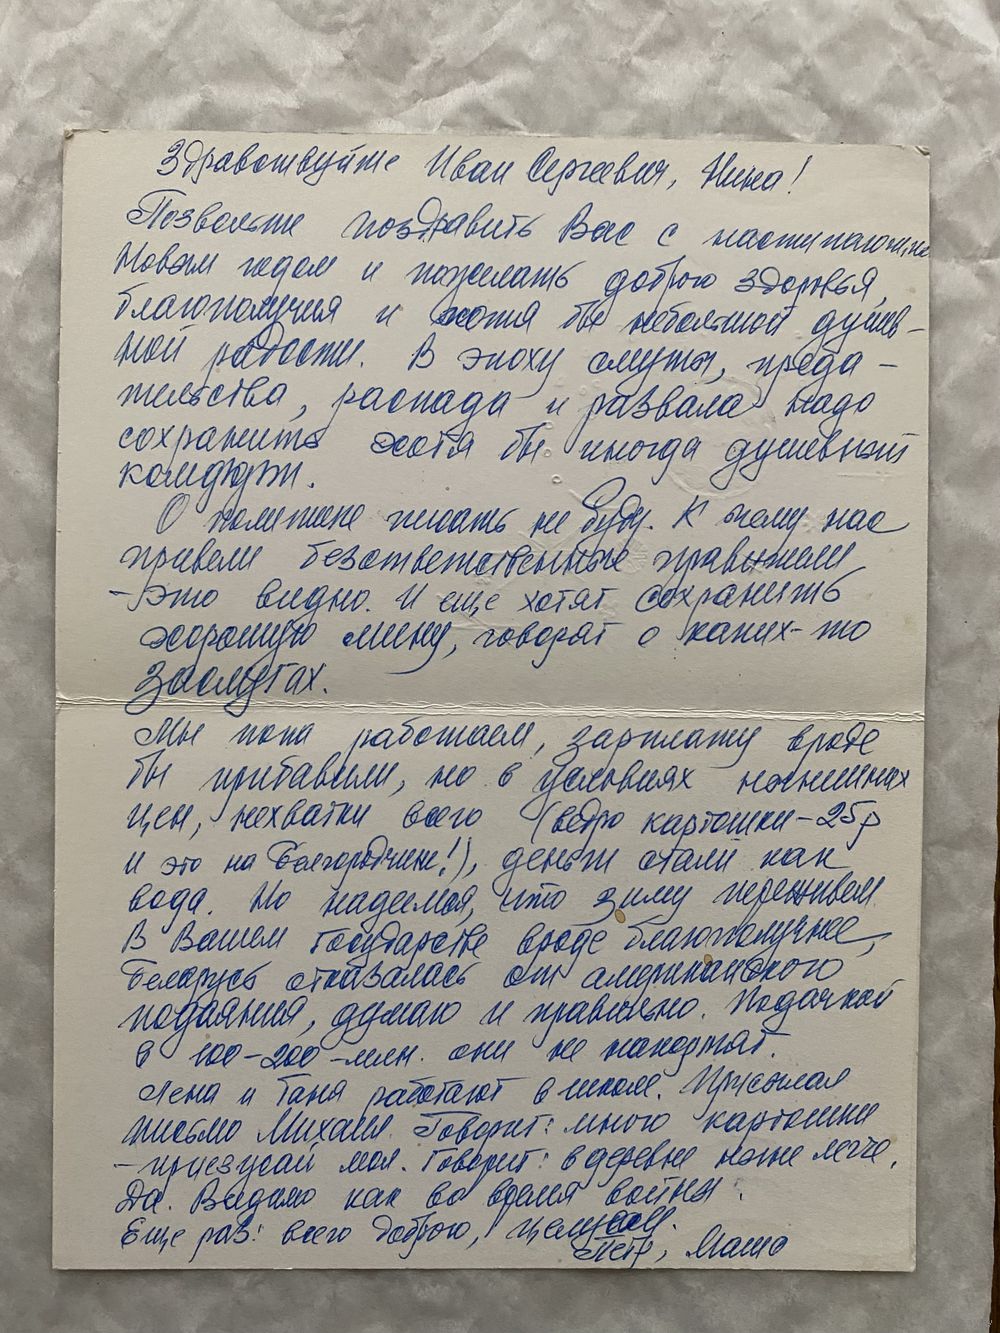 Здравствуйте Иван Сергеевич, Нина!
Позвольте поздравить Вас с наступающим
Новым годом и пожелать доброго здоровья,
благополучия и хотя бы небольшой душев-
ной радости. В эпоху смуты, преда-
тельства, распада и развала надо
сохранить хотя бы иногда душевный
комфорт.
О политике писать не буду. К чему нас
привели безответственные правители
- это видно. И еще хотят сохранить
хорошую мину, говорят о каких-то
заслугах.
Мы пока работаем, зарплату вроде
бы прибавили, но в условиях нынешних
цен, нехватки всего (ведро картошки - 25р
и это на Белгородчине!), деньги стали как
вода. Но надеемся, что зиму переживем.
В Вашем государстве вроде благополучнее,
Беларусь отказалась от американского
подаяния, думаю и правильно. Подачкой
в 100-200-млн. они не накормят.
Лена и Таня работают в школе. Прислал
письмо Михаил. Говорит: много картошки
- приезжай мол. Говорит: в деревне ныне легче.
Да. Видимо как во время войны.
Еще раз: всего доброго, целуем.
Петр, Маша